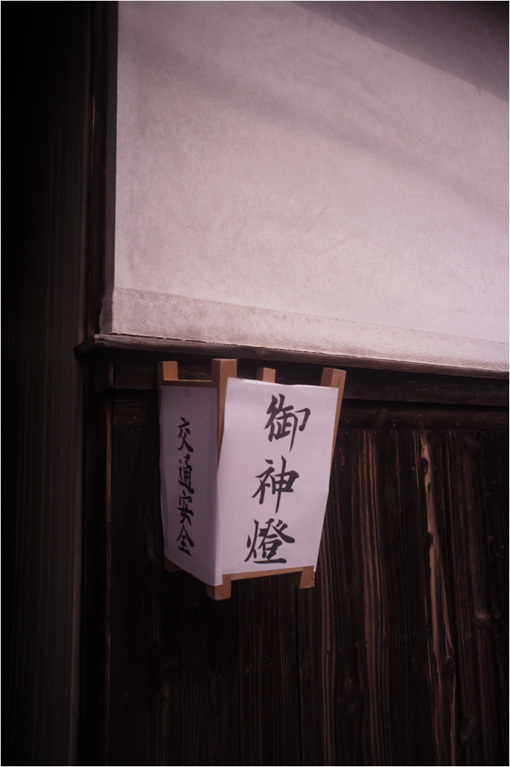 御神燈
交通安全